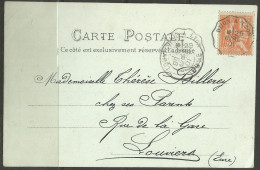 CARTE POSTALE
Ce côté est exclusivement réservé à l'adresse
Mademoiselle Thérèse Billerey
chez ses Parents
Rue de la Gare
Louviers
(Eure)